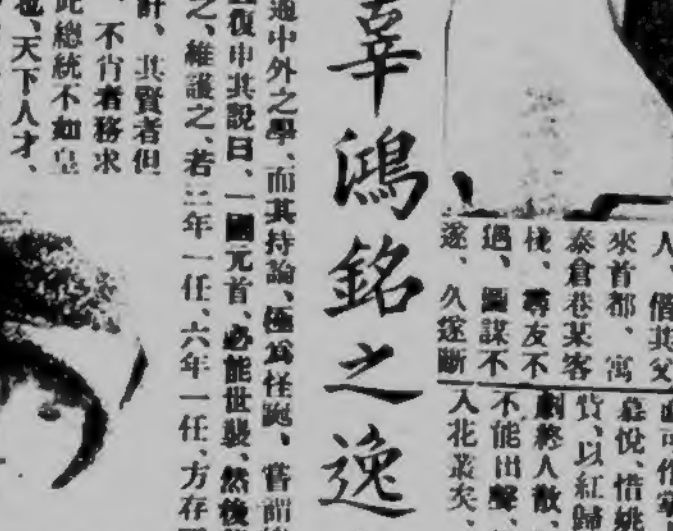 人、偕其父
來首都、寓
泰倉巷某客
棧、尋友不
遇、圖謀不
遂、久遂斷
慕悅、惜姚
貲、以紅歸
劇終人散、
不能出聲、
入花叢矣、
辜鴻銘之逸
通中外之學、而其持論、極爲怪誕、嘗謂
復申其說曰、一國元首、必能世襲、然後
之、維護之、若三年一任、六年一任、方存
計、其賢者但
、不肖者務求
此總統不如皇
也、天下人才、